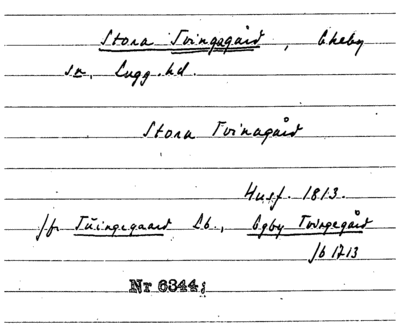 Stora Tvingagård, Åkeby
sn, Lugg. hd.
Stora Tvinagård
Husf. 1813.
Jfr Tüingegaard Lb., Egby Tvingegård
Jb 1713
Nr 6344;